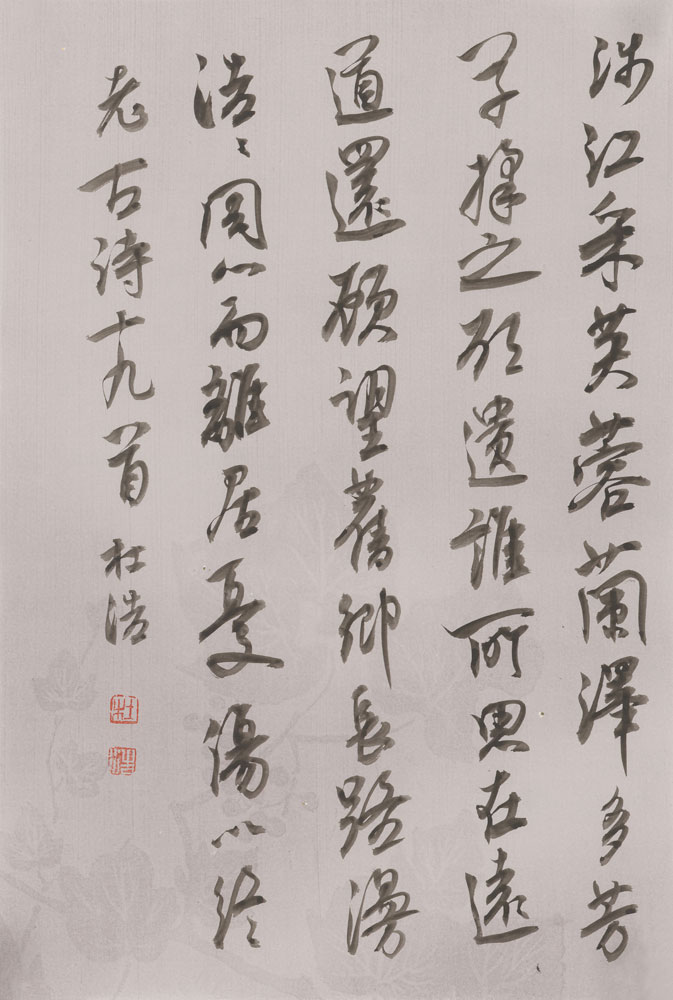 涉江采芙蓉蘭澤多芳
草採之欲遺誰所思在遠
道還顧望舊鄉長路漫
浩浩同心而離居憂傷以終
老古诗十九首 杜浩
杜